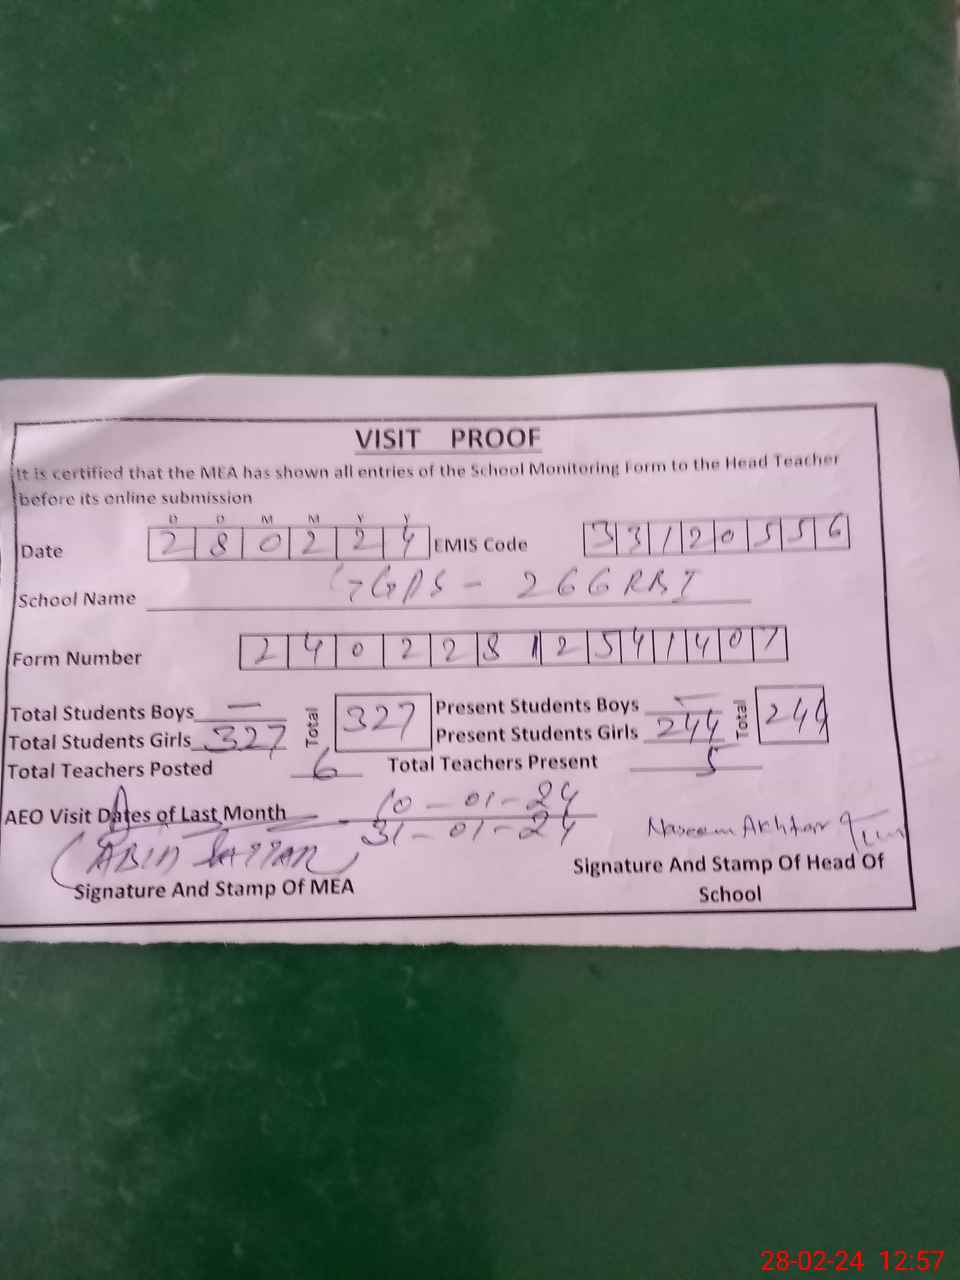 VISIT PROOF
It is certified that the MEA has shown all entries of the School Monitoring Form to the Head Teacher
before its online submission
D D M M Y Y
Date 2 8 0 2 2 4 EMIS Code 3 3 1 2 0 5 5 6
School Name GGPS - 266 RBI
Form Number 2 4 0 2 2 8 1 2 5 4 1 4 0 7
Total Students Boys — Total 327 Present Students Boys — Total 244
Total Students Girls 327 Present Students Girls 244
Total Teachers Posted 6 Total Teachers Present 5
AEO Visit Dates of Last Month 10-01-24
31-01-24
Naseem Akhtar
Signature And Stamp Of MEA
Signature And Stamp Of Head Of
School
28-02-24 12:57